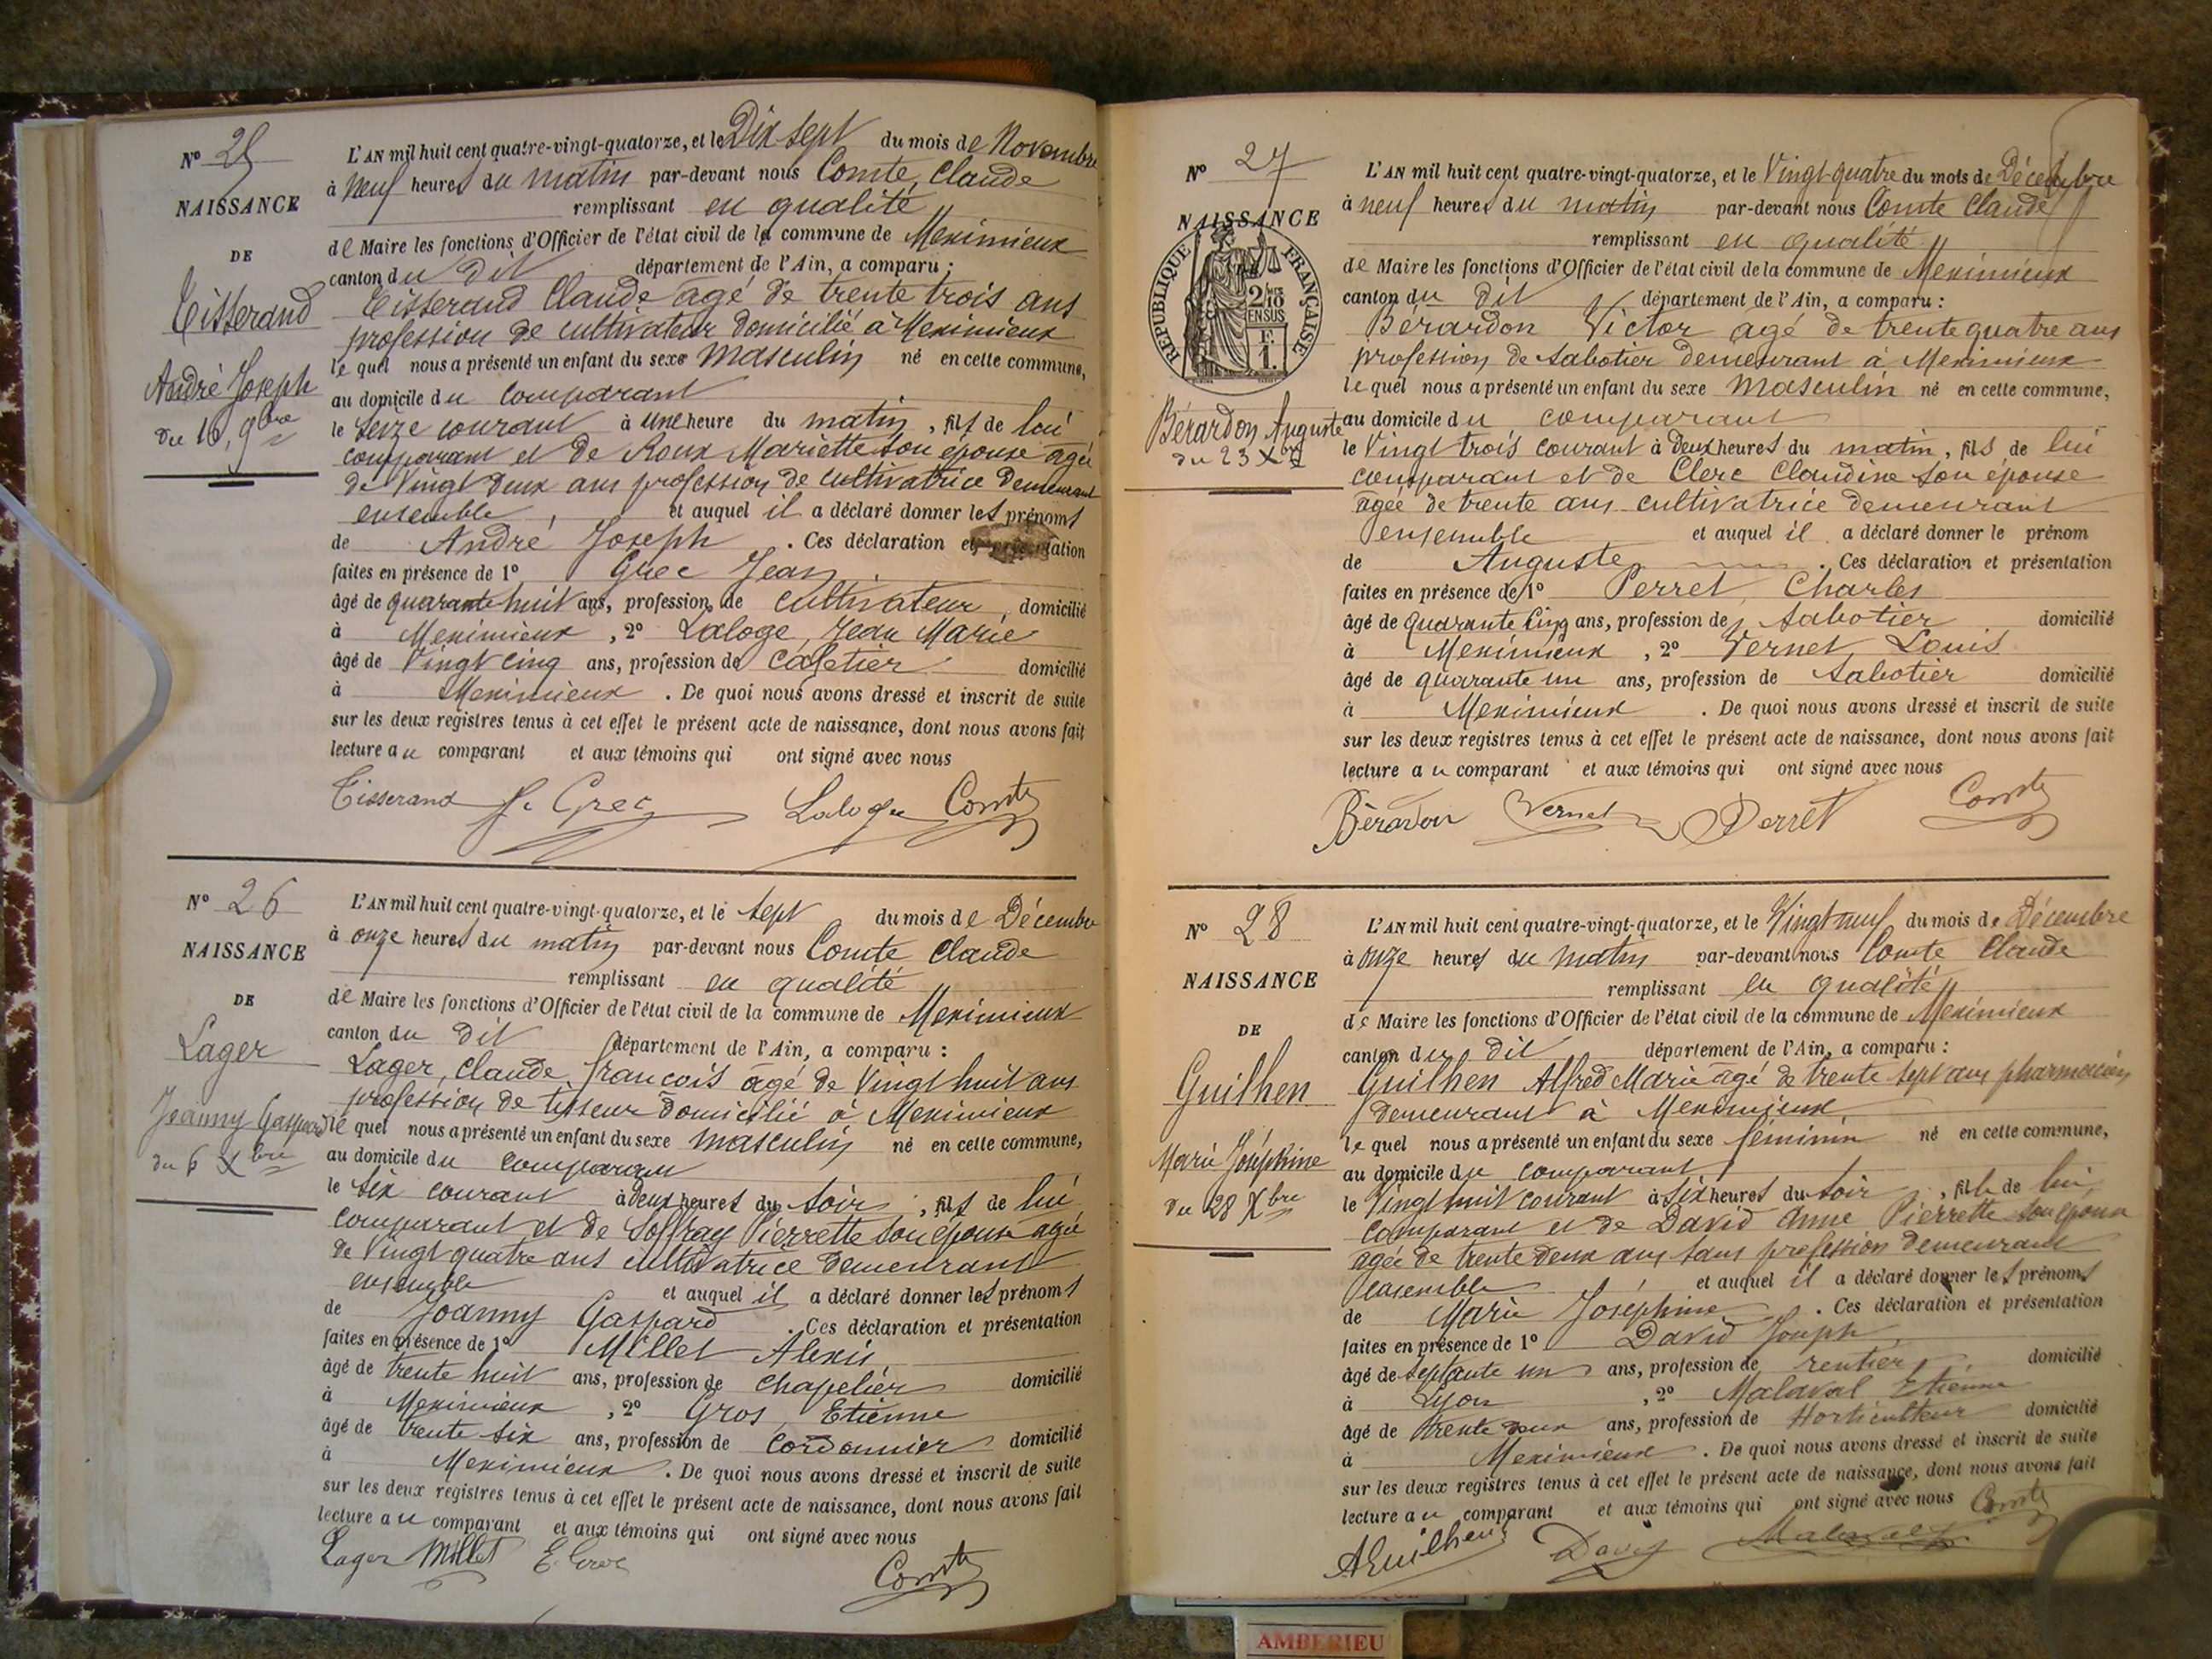 Nº 25
NAISSANCE
DE
Tisserand
André Joseph
du 16, 9bre
L'AN mil huit cent quatre-vingt-quatorze, et le Dix sept du mois de Novembre
à neuf heures du matin par-devant nous Comte, Claude
remplissant en qualité
de Maire les fonctions d'Officier de l'état civil de la commune de Meximieux
canton du dit département de l'Ain, a comparu :
Tisserand Claude âgé de trente trois ans
profession de cultivateur domicilié à Meximieux
le quel nous a présenté un enfant du sexe masculin né en cette commune,
au domicile du comparant
le seize courant à une heure du matin, fils de lui
comparant et de Roux Mariette son épouse agée
de Vingt deux ans profession de cultivatrice demeurant
ensemble, et auquel il a déclaré donner les prénoms
de André Joseph. Ces déclaration et présentation
faites en présence de 1º Grec Jean
âgé de quarante-huit ans, profession de cultivateur, domicilié
à Meximieux, 2º Laloge, Jean Marie
âgé de Vingt cinq ans, profession de cafetier domicilié
à Meximieux. De quoi nous avons dressé et inscrit de suite
sur les deux registres tenus à cet effet le présent acte de naissance, dont nous avons fait
lecture au comparant et aux témoins qui ont signé avec nous
Tisserand J. Grec Laloge Comte
Nº 26
NAISSANCE
DE
Lager
Joanny Gaspard
du 6 Xbre
L'AN mil huit cent quatre-vingt-quatorze, et le sept du mois de Décembre
à onze heures du matin par-devant nous Comte Claude
remplissant en qualité
de Maire les fonctions d'Officier de l'état civil de la commune de Meximieux
canton du dit département de l'Ain, a comparu :
Lager, Claude François âgé de Vingt huit ans
profession de tisseur domicilié à Meximieux
le quel nous a présenté un enfant du sexe masculin né en cette commune,
au domicile du comparant
le six courant à deux heures du soir, fils de lui
comparant et de Soffray Pierrette son épouse agée
de Vingt quatre ans cultivatrice demeurant
ensemble et auquel il a déclaré donner les prénoms
de Joanny Gaspard. Ces déclaration et présentation
faites en présence de 1º Millet Alexis
âgé de trente huit ans, profession de chapelier domicilié
à Meximieux, 2º Gros, Etienne
âgé de trente six ans, profession de cordonnier domicilié
à Meximieux. De quoi nous avons dressé et inscrit de suite
sur les deux registres tenus à cet effet le présent acte de naissance, dont nous avons fait
lecture au comparant et aux témoins qui ont signé avec nous
Lager Millet E. Gros
Comte
Nº 27
NAISSANCE
RÉPUBLIQUE FRANÇAISE
2/10 EN SUS
F. 1.
Bérardon Auguste
du 23 Xbre
L'AN mil huit cent quatre-vingt-quatorze, et le Vingt-quatre du mois de Décembre
à neuf heures du matin par-devant nous Comte Claude
remplissant en qualité
de Maire les fonctions d'Officier de l'état civil de la commune de Meximieux
canton du dit département de l'Ain, a comparu :
Bérardon Victor âgé de trente quatre ans
profession de sabotier demeurant à Meximieux
le quel nous a présenté un enfant du sexe masculin né en cette commune,
au domicile du comparant
le Vingt trois courant à deux heures du matin, fils de lui
comparant et de Clerc Claudine son épouse
âgée de trente ans cultivatrice demeurant
ensemble et auquel il a déclaré donner le prénom
de Auguste. Ces déclaration et présentation
faites en présence de 1º Perret, Charles
âgé de quarante cinq ans, profession de sabotier domicilié
à Meximieux, 2º Vernet, Louis
âgé de quarante un ans, profession de sabotier domicilié
à Meximieux. De quoi nous avons dressé et inscrit de suite
sur les deux registres tenus à cet effet le présent acte de naissance, dont nous avons fait
lecture au comparant et aux témoins qui ont signé avec nous
Bérardon Vernet Perret Comte
Nº 28
NAISSANCE
DE
Guilhen
Marie Joséphine
du 28 Xbre
L'AN mil huit cent quatre-vingt-quatorze, et le Vingt neuf du mois de Décembre
à onze heures du matin par-devant nous Comte Claude
remplissant en qualité
de Maire les fonctions d'Officier de l'état civil de la commune de Meximieux
canton du dit département de l'Ain, a comparu :
Guilhen Alfred Marie âgé de trente sept ans pharmacien
demeurant à Meximieux
le quel nous a présenté un enfant du sexe féminin né en cette commune,
au domicile du comparant
le Vingt huit courant à six heures du soir, fille de lui
comparant et de David Anne Pierrette son épouse
agée de trente deux ans sans profession demeurant
ensemble et auquel il a déclaré donner les prénoms
de Marie Joséphine. Ces déclaration et présentation
faites en présence de 1º David Joseph
âgé de septante un ans, profession de rentier, domicilié
à Lyon, 2º Malaval Etienne
âgé de trente deux ans, profession de Horticulteur domicilié
à Meximieux. De quoi nous avons dressé et inscrit de suite
sur les deux registres tenus à cet effet le présent acte de naissance, dont nous avons fait
lecture au comparant et aux témoins qui ont signé avec nous Comte
AGuilhen David Malaval
AMBERIEU